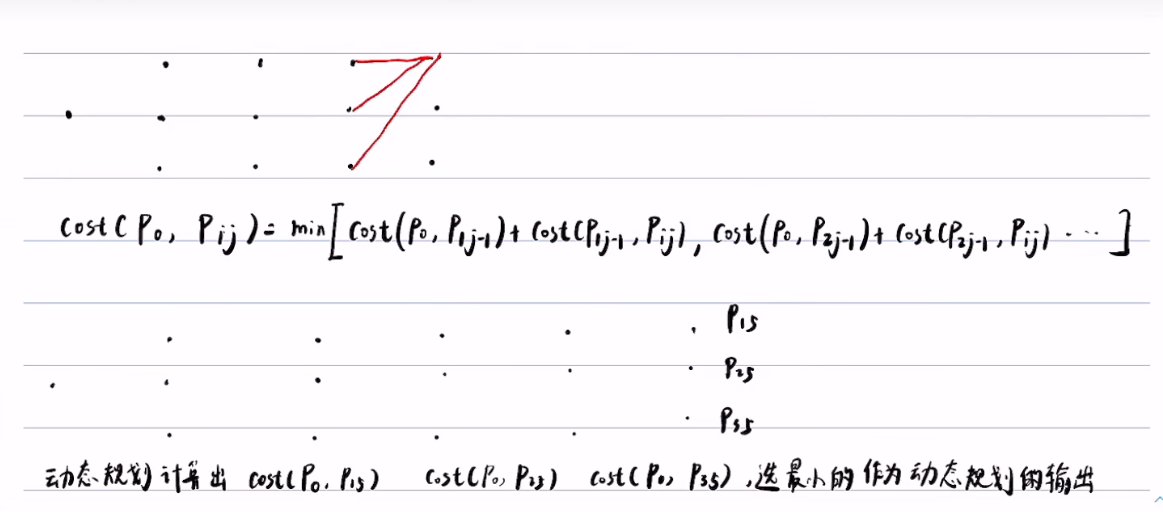 cost(P₀, Pᵢⱼ) = min[cost(P₀, P₁ⱼ₋₁) + cost(P₁ⱼ₋₁, Pᵢⱼ), cost(P₀, P₂ⱼ₋₁) + cost(P₂ⱼ₋₁, Pᵢⱼ) ⋯]
P₁₅
P₂₅
P₃₅
动态规划计算出 cost(P₀, P₁₅) cost(P₀, P₂₅) cost(P₀, P₃₅),选最小的作为动态规划的输出